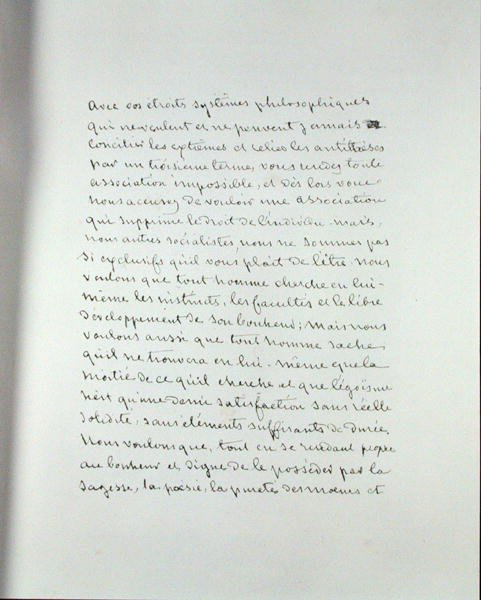 Avec vos étroits systêmes philosophiques
qui ne veulent et ne peuvent jamais
concilier les extrêmes et relier les antithèses
par un troisieme terme, vous rendez toute
association impossible, et dès lors vous
nous accusez de vouloir une association
qui supprime le droit de l'individu. mais,
nous autres socialistes, nous ne sommes pas
si exclusifs qu'il vous plait de l'être. nous
voulons que tout homme cherche en lui-
même les instincts, les facultés et le libre
développement de son bonheur; mais nous
voulons aussi que tout homme sache
qu'il ne trouvera en lui-même que la
moitié de ce qu'il cherche et que l'égoïsme
n'est qu'une demie satisfaction sans réelle
solidité, sans éléments suffisants de durée.
Nous voulons que, tout en se rendant propre
au bonheur et digne de le posséder par la
sagesse, la poésie, la pureté des moeurs et